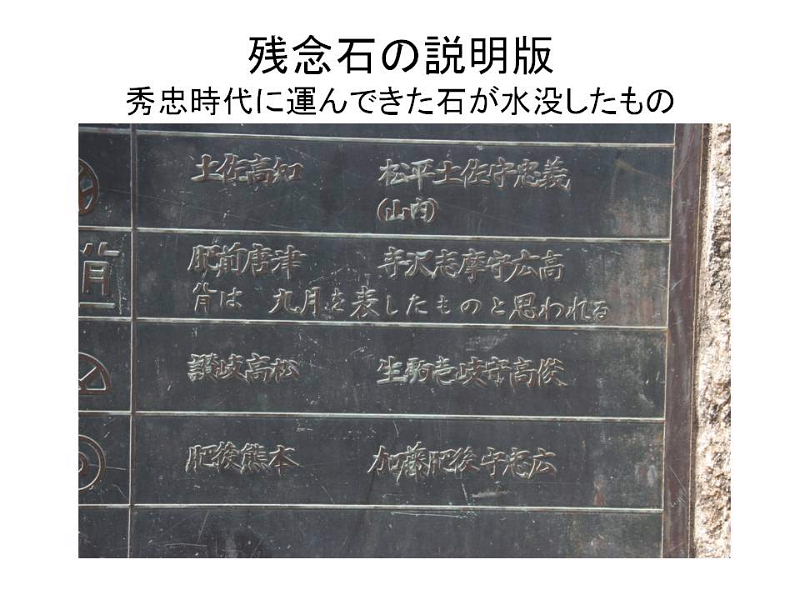 残念石の説明版
秀忠時代に運んできた石が水没したもの
土佐高知 松平土佐守忠義
(山内)
肥前唐津 寺沢志摩守広高
は 九月を表したものと思われる
讃岐高松 生駒壱岐守高俊
肥後熊本 加藤肥後守忠広